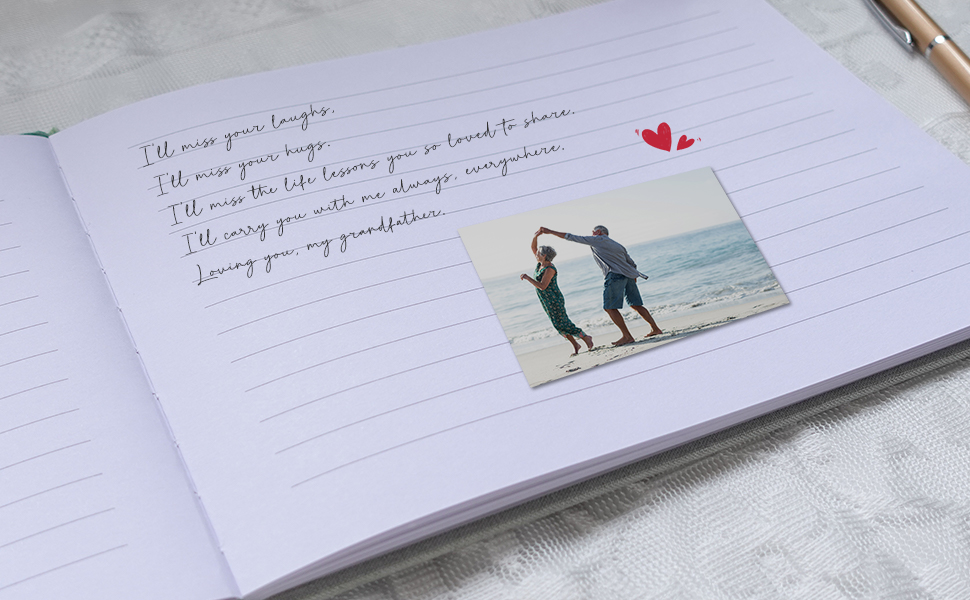 I'll miss your laughs,
I'll miss your hugs.
I'll miss the life lessons you so loved to share.
I'll carry you with me always, everywhere.
Loving you, my grandfather.